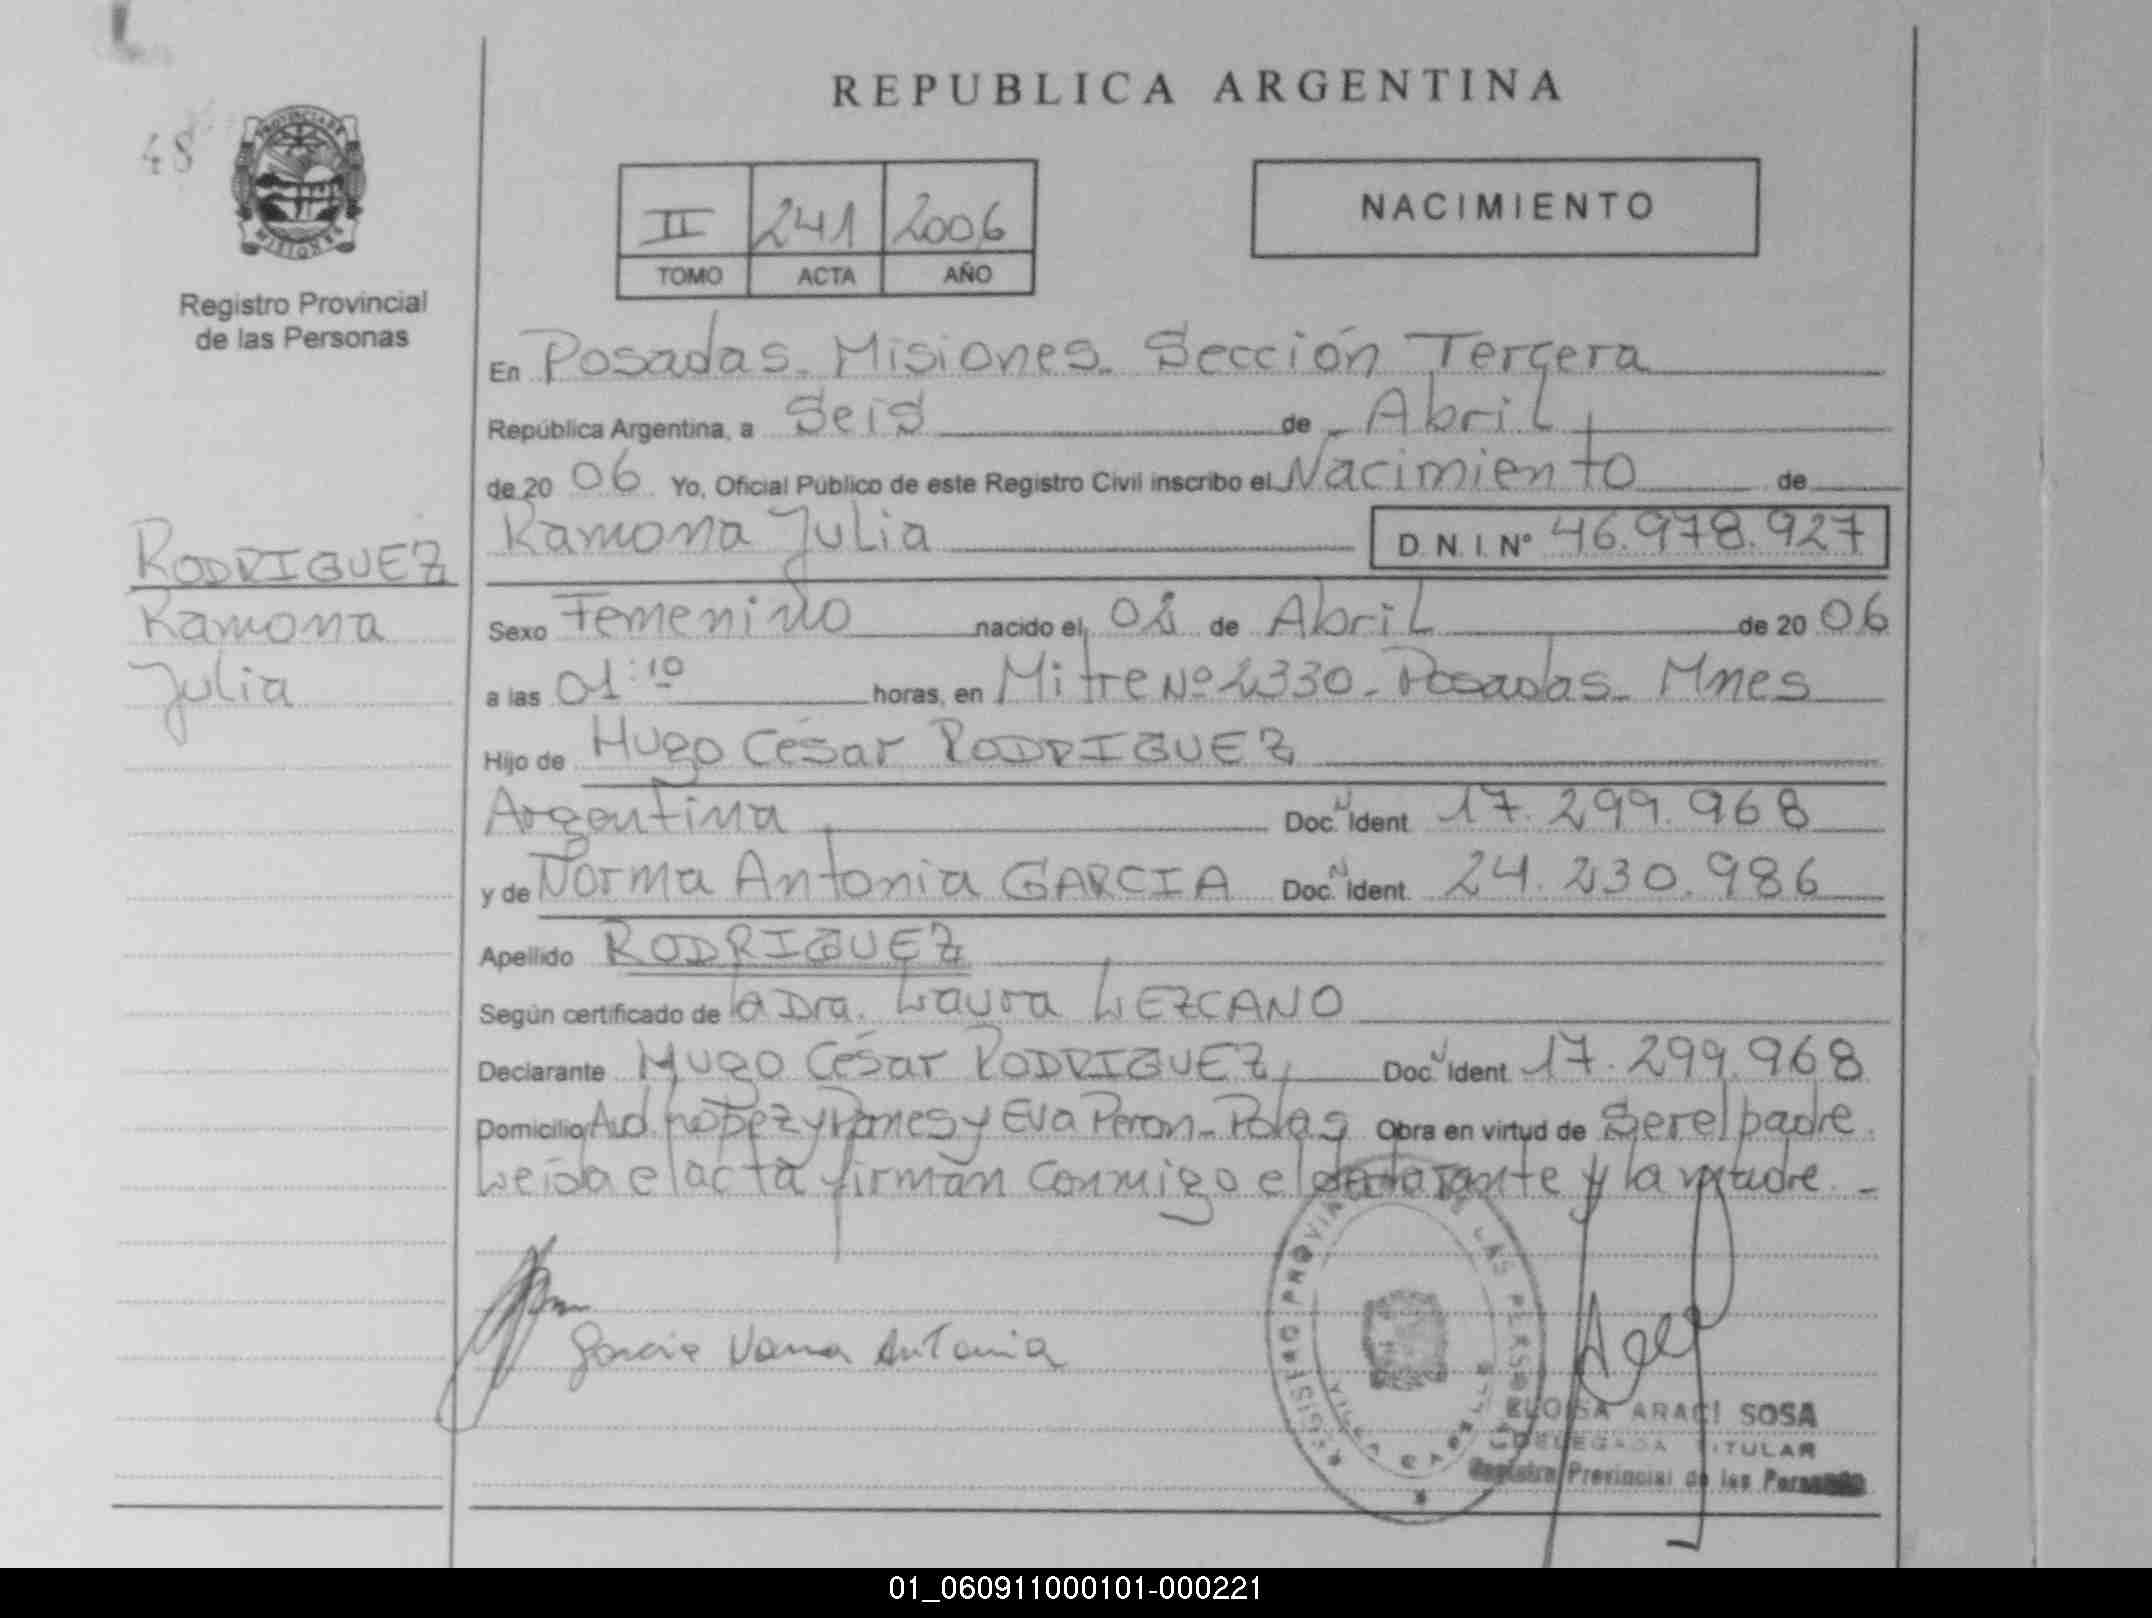 REPUBLICA ARGENTINA
48
PROVINCIA DE
MISIONES
Registro Provincial
de las Personas
II 241 2006
TOMO ACTA AÑO
NACIMIENTO
En Posadas. Misiones. Sección Tercera
República Argentina, a Seis de Abril
de 20 06 Yo, Oficial Público de este Registro Civil inscribo el Nacimiento de
Ramona Julia D.N.I. Nº 46.978.927
RODRIGUEZ
Ramona
Julia
Sexo Femenino nacido el de Abril de 20 06
a las 01:10 horas, en Mitre Nº 2330. Posadas. Mnes
Hijo de Hugo César RODRIGUEZ
Argentina Doc. N Ident 17.299.968
y de Norma Antonia GARCIA Doc. N Ident. 24.230.986
Apellido RODRIGUEZ
Según certificado de la Dra. Laura LEZCANO
Declarante Hugo César RODRIGUEZ Doc. N Ident 17.299.968
Domicilio y Eva Peron - Obra en virtud de Ser el padre.
Leída el acta firman conmigo el declarante y la madre. -
Garcia Norma Antonia
REGISTRO PROVINCIAL DE LAS PERSONAS
ELOISA ARACI SOSA
DELEGADA TITULAR
Registro Provincial de las Personas
01_060911000101-000221